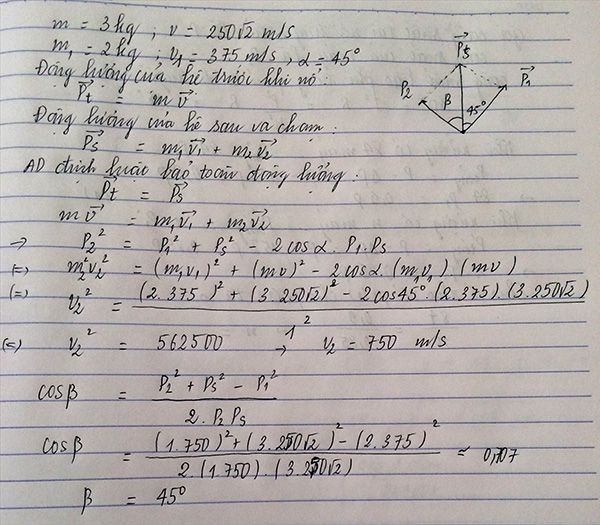 m = 3kg ; v = 250√2 m/s
m₁ = 2kg ; v₁ = 375 m/s, α = 45°
Động lượng của hệ trước khi nổ:
P⃗t = m v⃗
Động lượng của hệ sau va chạm:
P⃗s = m₁v⃗₁ + m₂v⃗₂
AD định luật bảo toàn động lượng:
P⃗t = P⃗s
m v⃗ = m₁v⃗₁ + m₂v⃗₂
→ P₂² = P₁² + Ps² - 2 cosα. P₁.Ps
(=) m₂²v₂² = (m₁v₁)² + (mv)² - 2cosα (m₁v₁).(mv)
(=) v₂² = (2.375)² + (3.250√2)² - 2cos45°.(2.375).(3.250√2)
1²
(=) v₂² = 562500 → v₂ = 750 m/s
cosβ = P₂² + Ps² - P₁²
2. P₂ Ps
cosβ = (1.750)² + (3.250√2)² - (2.375)² ≈ 0,707
2.(1.750).(3.250√2)
β = 45°
P⃗s
P₂
P⃗₁
β
45°